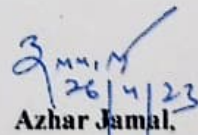 26/4/23
Azhar Jamal,